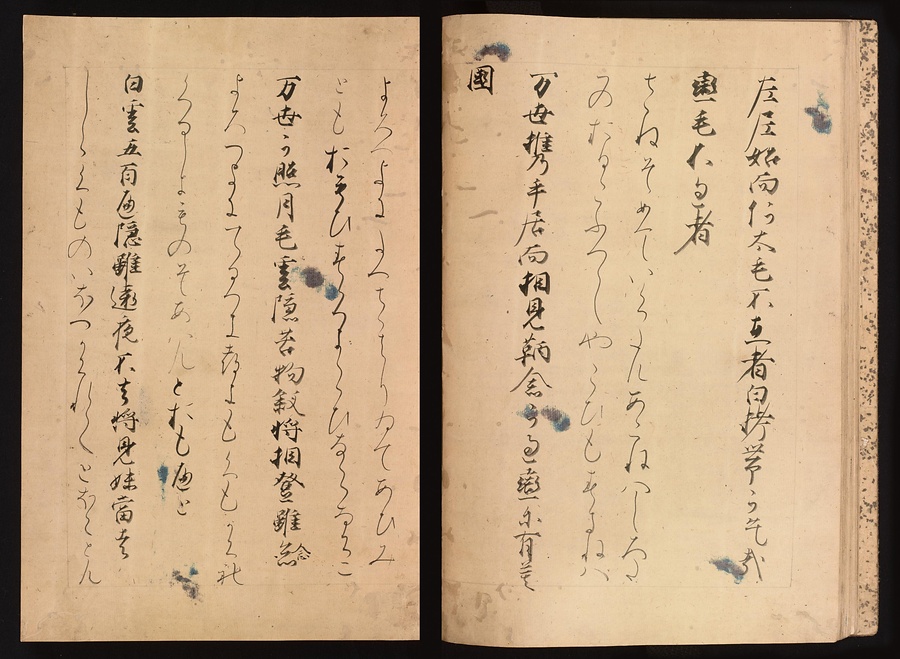 左尼始而何太毛不在者白栲帶可乞哉
戀毛不過者
さねそめていくたもあらねはしろた
へのおひこふへしやこひもすきねは
万世携手居而相見鞆念可過戀尓有莫
國
よろつよにたつさはりゐてあひみ
ともおもひす
万世可照月毛雲隠苦物叙将相登雖念
よろつよにてるつきもくもかくれ
くるしきものそあはんとおもへと
白雲五百遍隠雖遠夜不去将見妹當者
しらくものいほつかくれてとほくとん